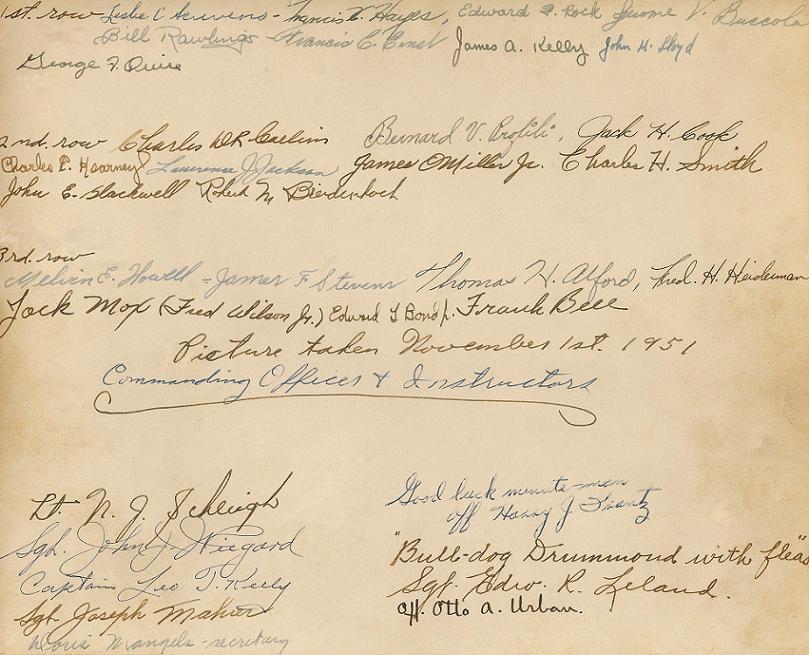 1st. row Leslie C. - Francis X. Hayes, Edward P. Rock Jerome V. Buccola
Bill Rawlings - Francis E. Ernst James A. Kelly John H. Lloyd
George F.
2nd. row Charles Bernard V. Profili, Jack H. Cook
Charles P. Kearney Laurence J. Jackson James O Miller Jr. Charles H. Smith
John E. Blackwell Robert M.
3rd. row
Melvin E. Howell - James F Stevens Thomas H. Alford, Fred. H. Heiderman
Jack Mox (Fred Wilson Jr.) Edward L Bond Jr. Frank Bell
Picture taken November 1st. 1951
Commanding Officer & Instructors
Lt. N. J. Schleigh
Sgt. John J. Wiegard
Captain Leo T. Kelly
Sgt. Joseph Maher
Doris Mangels - secretary
Good luck minute-men
off Harry J Frantz
"Bull-dog Drummond with fleas"
Sgt. Edw. R. Leland.
Off. Otto A. Urban.